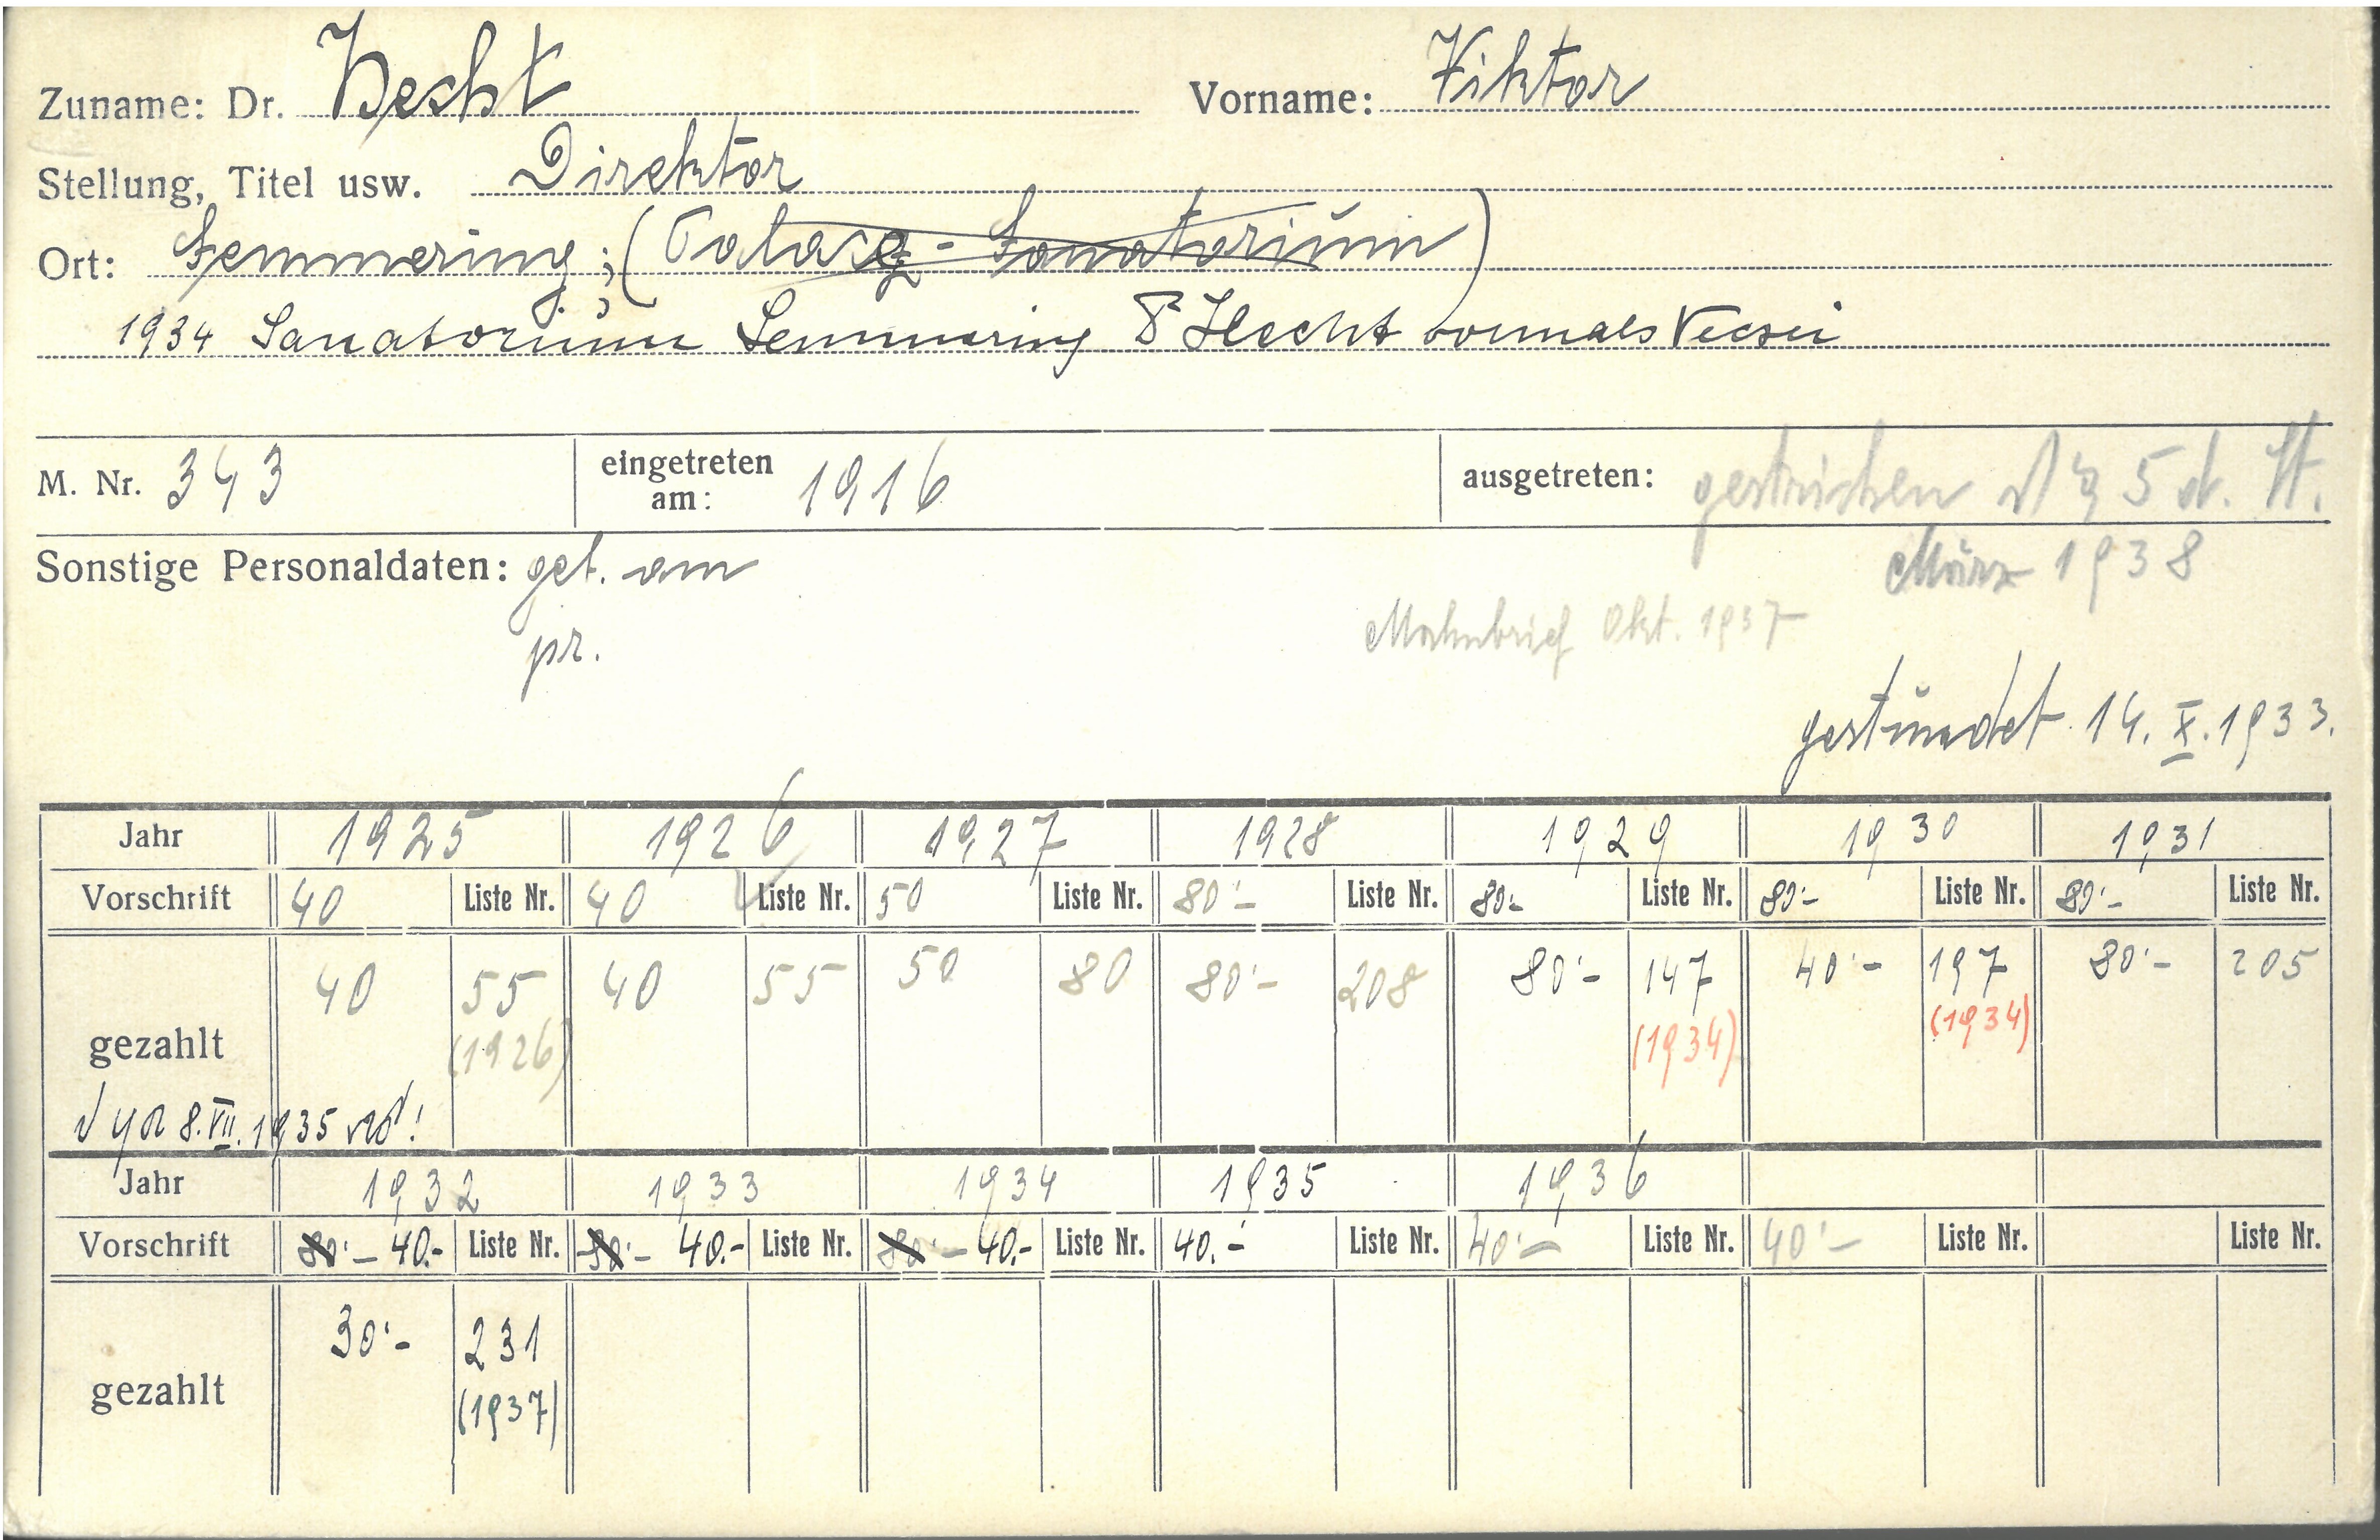 Zuname: Dr. Hecht Vorname: Viktor
Stellung, Titel usw. Direktor
Ort: Semmering; (Palace-Sanatorium)
1934 Sanatorium Semmering Dr Hecht vormals Vecsei
M. Nr. 343 eingetreten am: 1916 ausgetreten: gestrichen § 5 d. St.
März 1938
Sonstige Personaldaten: geb. am
Mahnbrief Okt. 1937
pr.
gestundet 14. X. 1933.
Jahr 1925 1926 1927 1928 1929 1930 1931
Vorschrift 40 Liste Nr. 40 Liste Nr. 50 Liste Nr. 80·– Liste Nr. 80.- Liste Nr. 80·– Liste Nr. 80·– Liste Nr.
gezahlt 40 55 40 55 50 80 80·– 208 80·– 147 40·– 197 80·– 205
(1926) (1934) (1934)
8. VII. 1935
Jahr 1932 1933 1934 1935 1936
Vorschrift 80·– 40.- Liste Nr. 80·– 40.- Liste Nr. 80·– 40.- Liste Nr. 40.- Liste Nr. 40·– Liste Nr. 40·– Liste Nr. Liste Nr.
gezahlt 30·– 231
(1937)